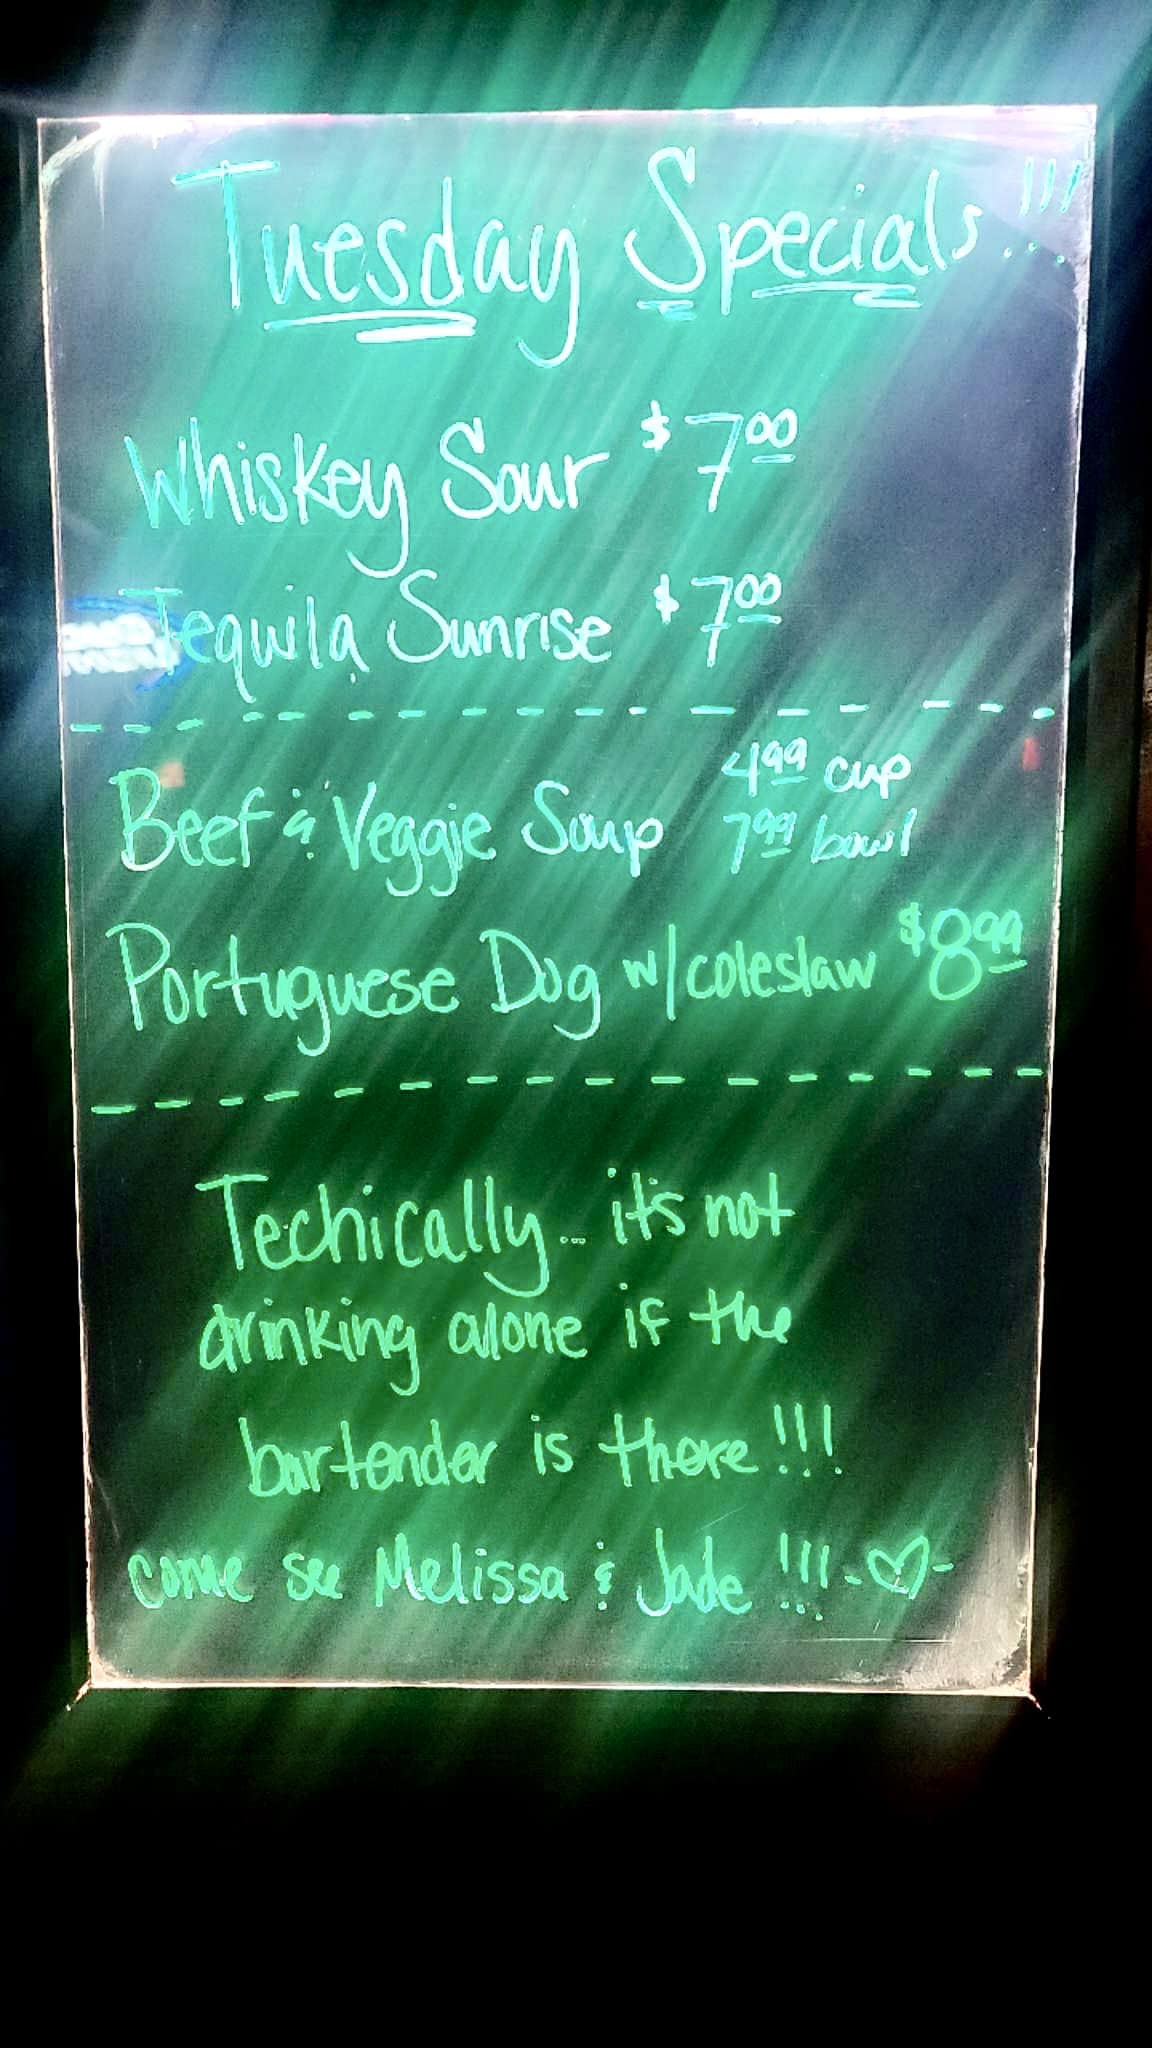 Tuesday Specials...!!!
Whiskey Sour $7.00
Tequila Sunrise $7.00
Beef & Veggie Soup 4.99 cup
7.99 bowl
Portuguese Dog w/coleslaw $8.99
Techically... it's not
drinking alone if the
bartender is there!!!
come see Melissa & Jade!!! -♡-